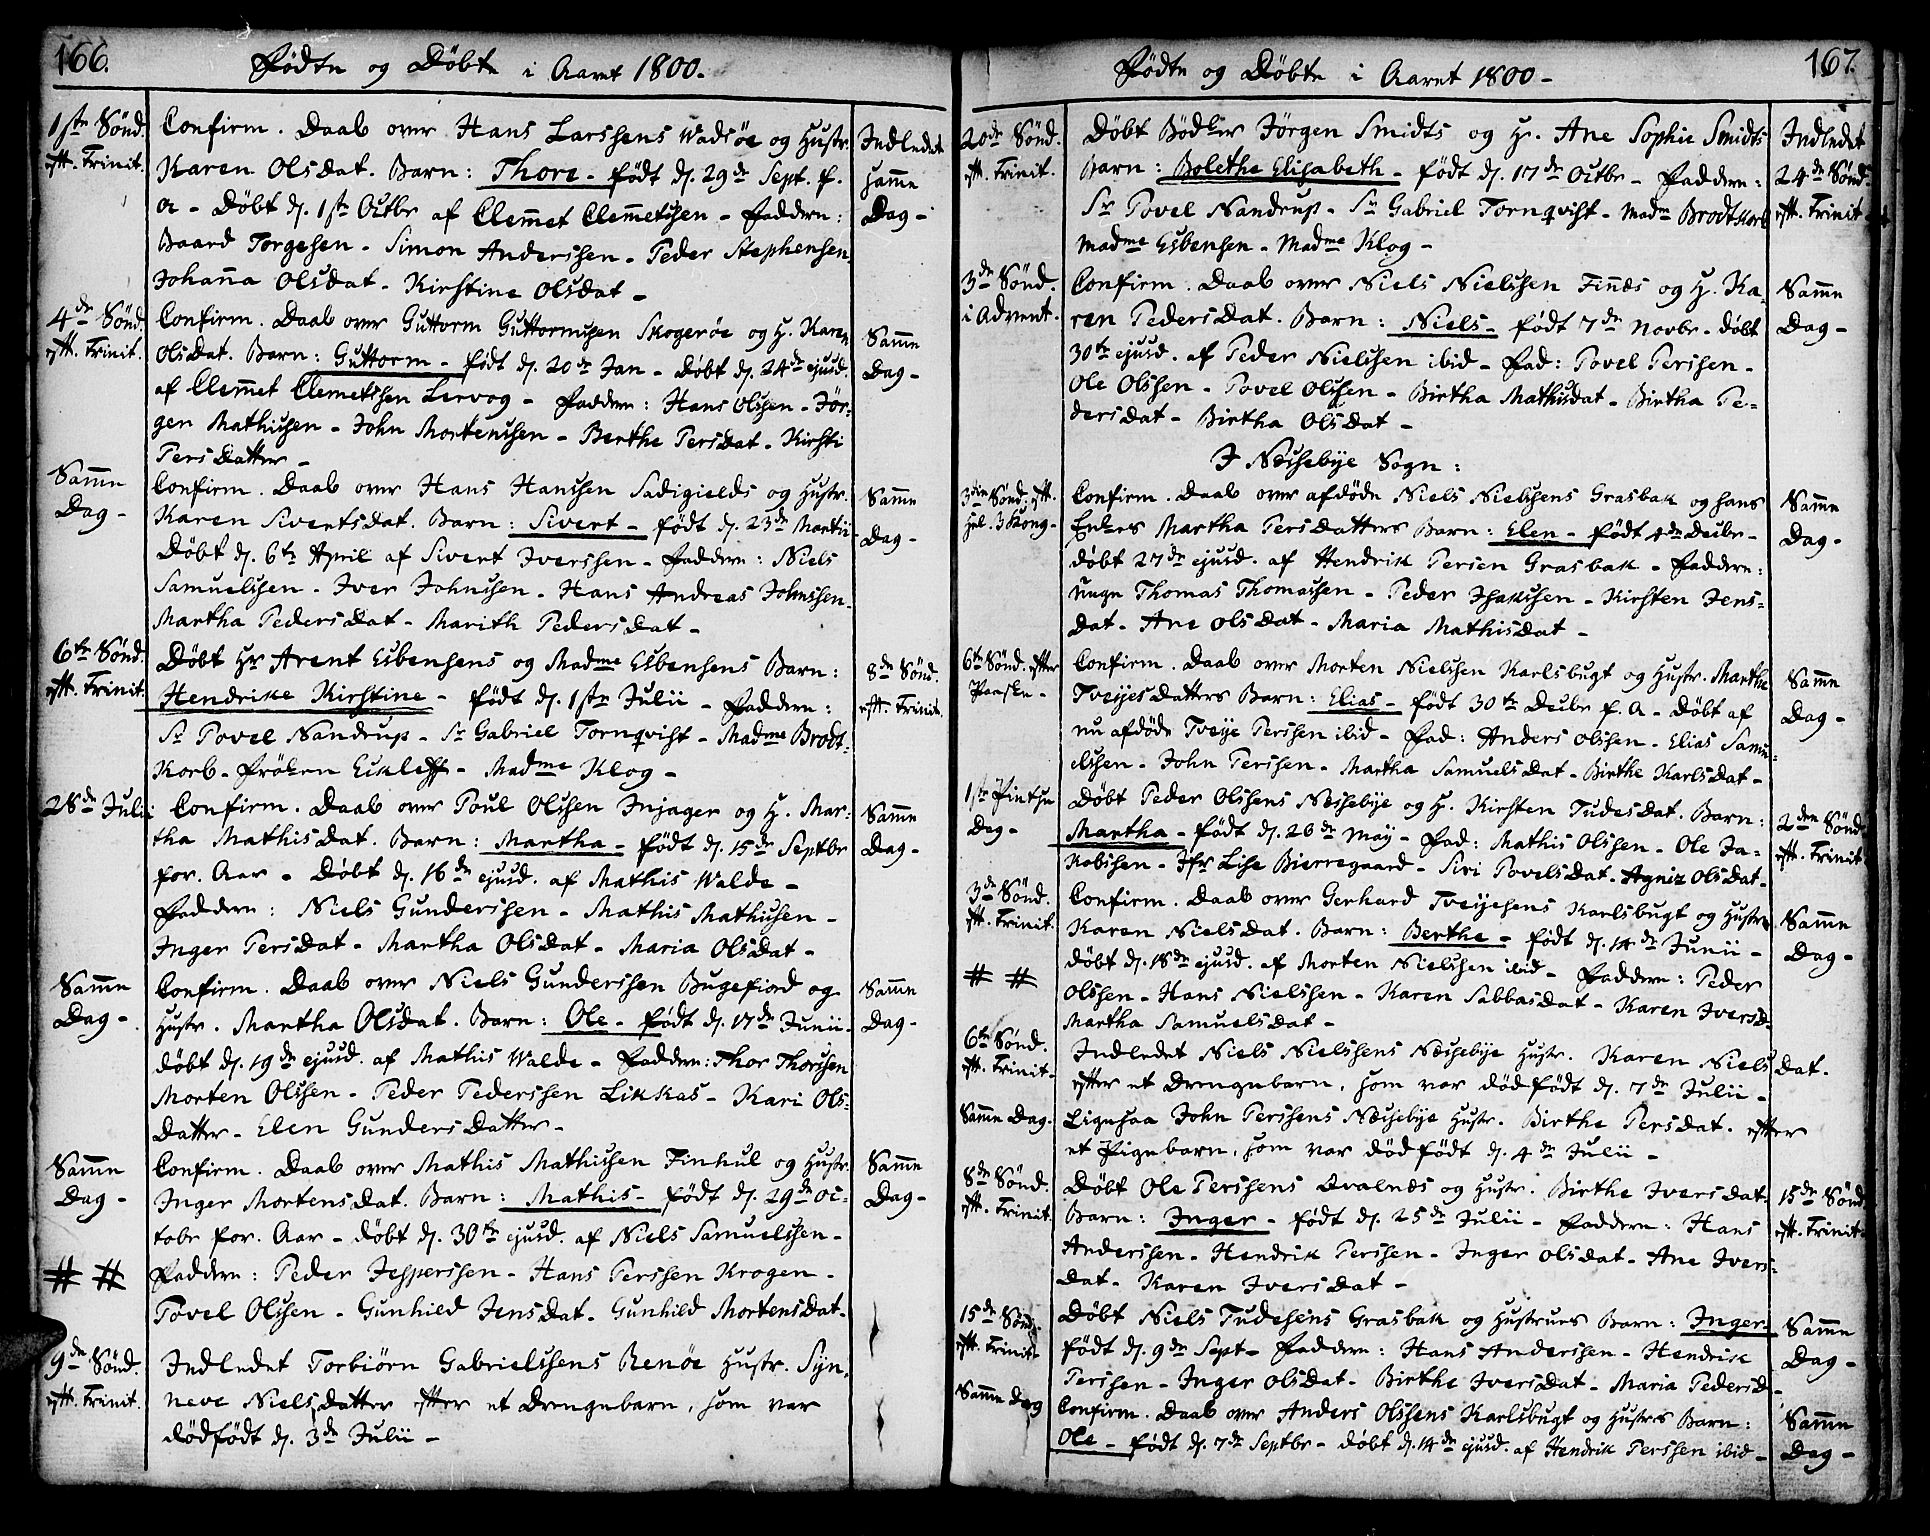 166.
Fødte og Døbte i Aaret 1800.
1ste Sønd. eft. Trinit.
Confirm. Daab over Hans Larssens Wadsøe og Hustr.
Karen Olsdat. Barn: Thore - født d. 29de Sept. f.
A - Døbt d. 1ste Octbr af Clemet Clemetsen - Faddere:
Baard Torgesen - Simon Anderssen - Peder Stephensen
Johanna Olsdat - Kirstine Olsdat -
Indledet samme Dag -
4de Sønd. eft. Trinit.
Confirm. Daab over Guttorm Guttormsen Skogerøe og H. Karen
Olsdat. Barn: Guttorm - født d. 20de Jan - døbt d. 24de ejusd.
af Clemet Clemetssen Lervog - Faddere: Hans Olssen - Jør-
gen Mathissen - John Mortenssen - Berthe Persdat - Kirsti
Persdatter -
Samme Dag -
Samme Dag -
Confirm. Daab over Hans Hanssen Sadigields og Hustr.
Karen Sivertsdat. Barn: Sivert - født d. 23de Martii
Døbt d. 6te April af Sivert Iverssen - Faddere: Niels
Samuelssen - Iver Johnssen - Hans Andreas Johnssen
Martha Pedersdat - Marith Pedersdat -
Samme Dag -
6te Sønd. eft. Trinit.
Døbt Hr Arent Esbensens og Madme Esbensens Barn:
Hendrike Kirstine - født d. 1ste Julii - Faddere:
Sr Povel Nandrup - Sr Gabriel Tornqvist - Madme Brodt-
korb - Frøken Eikleff - Madme Klog -
8de Sønd. eft. Trinit.
28de Julii
Confirm. Daab over Poul Olssen Injager og H. Mar-
tha Mathisdat. Barn: Martha - født d. 15de Septbr
for. Aar - Døbt d. 16de ejusd. af Mathis Walde -
Faddere: Niels Gunderssen - Mathis Mathissen -
Inger Persdat - Martha Olsdat - Maria Olsdat -
Samme Dag -
Samme Dag -
Confirm. Daab over Niels Gunderssen Bugefiord og
Hustr. Martha Olsdat. Barn: Ole - født d. 17de Junii -
døbt d. 19de ejusd. af Mathis Walde - Faddere: Thor Thorssen
Morten Olssen - Peder Pederssen Likkas - Kari Ols-
datter - Elen Gundersdatter -
Samme Dag -
Samme Dag -
Confirm. Daab over Mathis Mathissen Finhul og Hustr.
Inger Mortensdat. Barn: Mathis - født d. 29de Oc-
tobr for. Aar - døbt d. 30te ejusd. af Niels Samuelssen -
Faddere: Peder Jesperssen - Hans Perssen Krogen -
Povel Olssen - Gunhild Jensdat - Gunhild Mortensdat -
Samme Dag -
# #
9de Sønd. eft. Trinit.
Indledet Torbiørn Gabrielssens Renøe Hustr. Syn-
neve Nielsdatter efter et Drengebarn, som var
dødfødt d. 3de Julii -
167.
Fødte og Døbte i Aaret 1800 -
20de Sønd. eft. Trinit.
Døbt Bødker Jørgen Smidts og H. Ane Sophie Smidts
Barn: Bolethe Elisabeth - født d. 17de Octbr - Faddere:
Sr Povel Nandrup - Sr Gabriel Tornqvist - Madme Brodtkorb
Madme Esbensen - Madme Klog -
Indledet 24de Sønd. eft. Trinit -
3de Sønd. i Advent.
Confirm. Daab over Niels Nielssen Finnes og H. Ka-
ren Pedersdat. Barn: Niels - født 7de Novbr - døbt
30te ejusd. af Peder Nielssen ibid - Fad: Povel Perssen -
Ole Olssen - Povel Olssen - Birtha Mathisdat - Birtha Pe-
dersdat - Birtha Olsdat -
Samme Dag -
I Næssebye Sogn:
3die Sønd. eft. Hel. 3 Kong -
Confirm. Daab over afdøde Niels Nielssens Grasbak og hans
Enkes Martha Persdatters Barn: Elen - født 4de Decbr -
døbt 27de ejusd. af Hendrik Persen Grasbak - Faddere:
unge Thomas Thomassen - Peder Isakssen - Kirsten Jens-
dat - Ane Olsdat - Maria Mathisdat -
Samme Dag -
6te Sønd. efter Paaske -
Confirm. Daab over Morten Nielssen Karlsbugt og Hustr. Marthe
Tveijesdatters Barn: Elias - født 30te Decbr f. A - Døbt af
nu afdøde Tveije Perssen ibid - Fad: Anders Olssen - Elias Samu-
elssen - John Perssen - Martha Samuelsdat - Birthe Karlsdat -
Samme Dag -
1ste Pintse Dag -
Døbt Peder Olssens Næssebye og H. Kirsten Tudesdat. Barn:
Martha - født d. 26de May - Fad: Mathis Olssen - Ole Ja-
kobssen - Jfr Lise Bierregaard - Siri Povelsdat - Agniz Olsdat -
2den Sønd. eft. Trinit -
3de Sønd. eft. Trinit.
Confirm. Daab over Gerhard Tveijesens Karlsbugt og Hustrs
Karen Nielsdat. Barn: Berthe - født d. 14de Junii -
døbt d. 18de ejusd. af Morten Nielssen ibid - Faddere: Peder
Olssen - Hans Nielssen - Karen Sabbasdat - Karen Iversd -
Martha Samuelsdat -
Samme Dag -
# #
6te Sønd. eft. Trinit -
Indledet Niels Nielssens Næssebye Hustr. Karen Nielsdat.
efter et Drengebarn, som var dødfødt d. 7de Julii -
Samme Dag.
Ligesaa John Perssens Næssebye Hustr. Birthe Persdat. efter
et Pigebarn, som var dødfødt d. 4de Julii -
8de Sønd. eft. Trinit.
Døbt Ole Perssens Qvalnæs og Hustr. Birthe Iversdat.
Barn: Inger - født d. 25de Julii - Faddere: Hans
Anderssen - Hendrik Perssen - Inger Olsdat - Ane Ivers-
dat - Karen Iversdat -
15de Sønd. eft. Trinit -
15de Sønd. eft. Trinit -
Døbt Niels Tudesens Grasbak og Hustrues Barn: Inger
født d. 9de Sept - Faddere: Hans Anderssen - Hendrik
Perssen - Inger Olsdat - Birthe Iversdat - Maria Pedersd -
Samme Dag -
Samme Dag
Confirm. Daab over Anders Olssens Karlsbugt og Hustrs Barn:
Ole - født d. 7de Septbr - døbt d. 14de ejusd. af Hendrik Perssen ibid -
Samme Dag -